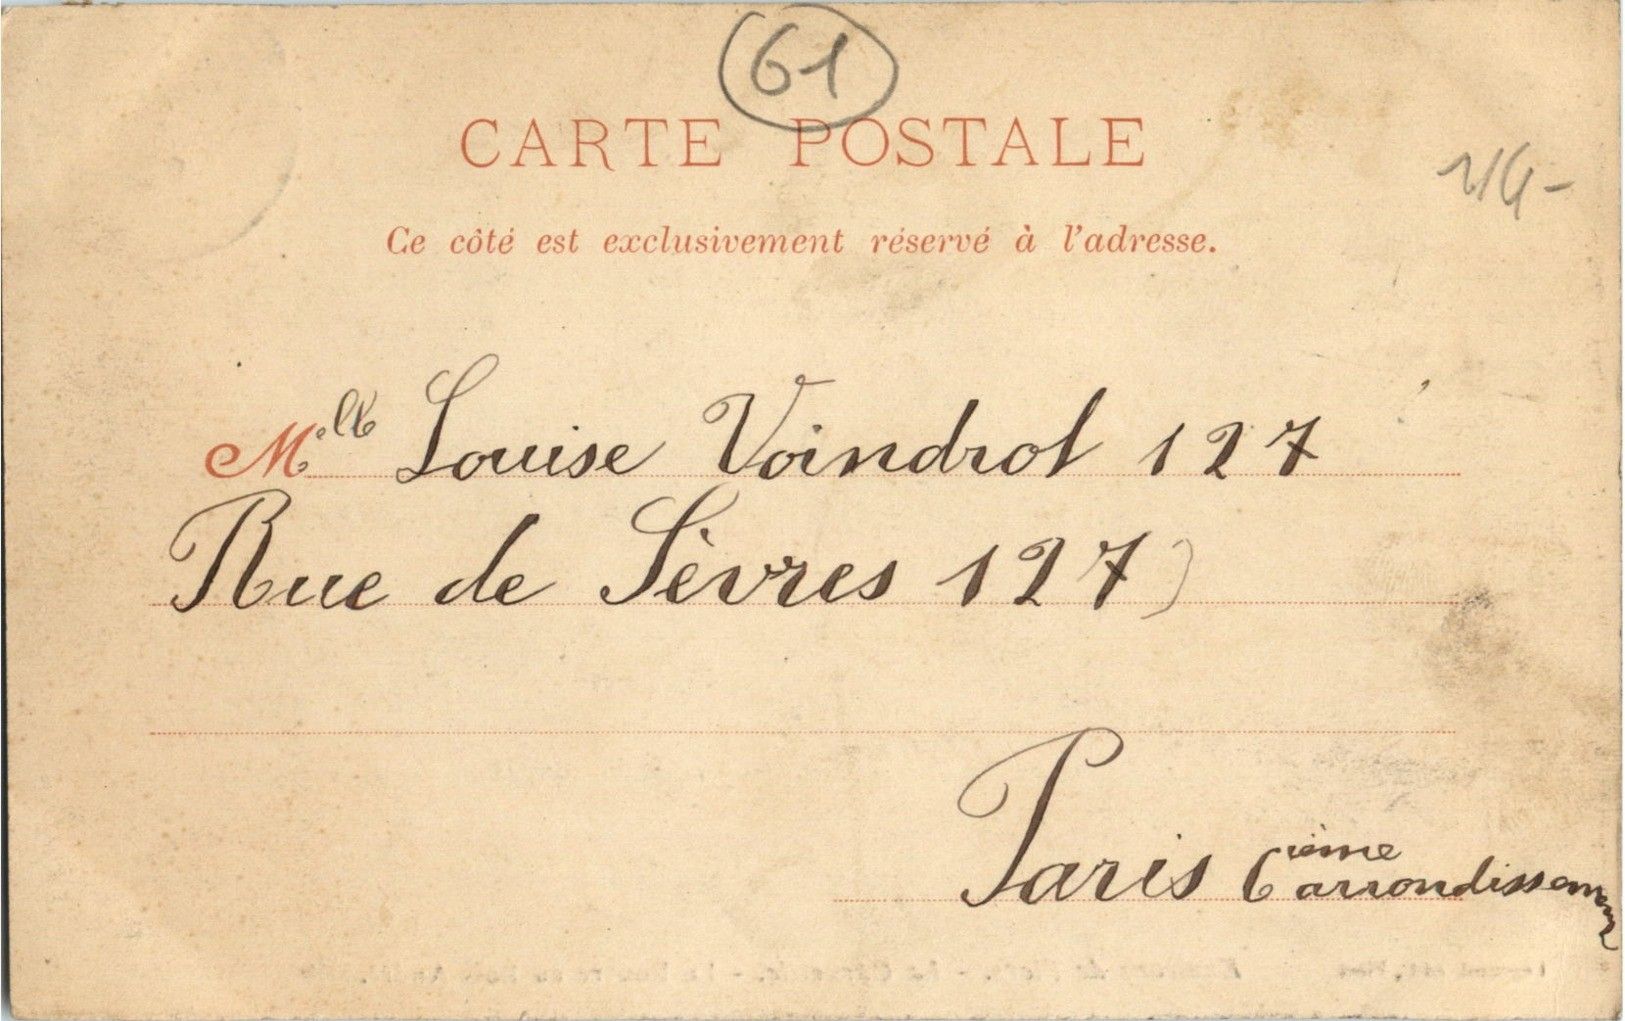 61
CARTE POSTALE
Ce côté est exclusivement réservé à l'adresse.
Mlle Louise Voindrot 127
Rue de Sèvres 127
Paris 6ième arrondissement